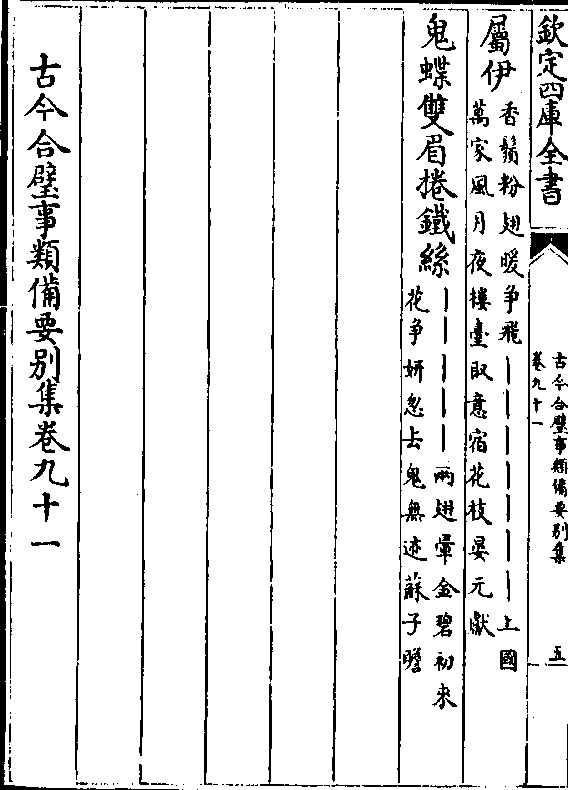 欽定四庫全書
古今合璧事類備要別集
卷九十一
五
屬伊
香鬚粉翅暖争飛｜｜｜｜｜｜｜上國
萬家風月夜樓臺取意宿花枝晏元獻
鬼蝶雙眉捲鐵絲
｜｜｜｜｜兩翅暈金碧初来
花争妍忽去鬼無迹蘇子瞻
古今合璧事類備要別集卷九十一